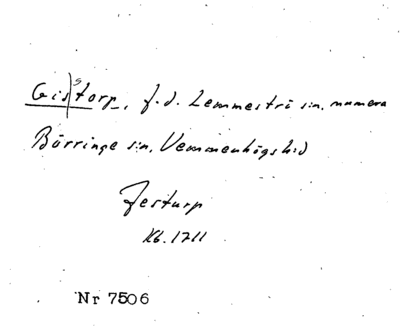 Gis|storp, f.d. Lemmeströ sn, numera
Börringe sn, Vemmenhögs hd
Jesturp
Kb. 1711
Nr 7506